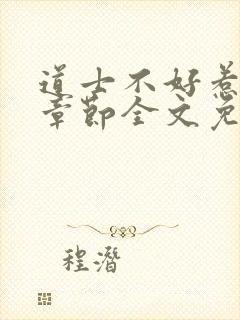 道士不好惹
章节全文免
程潛